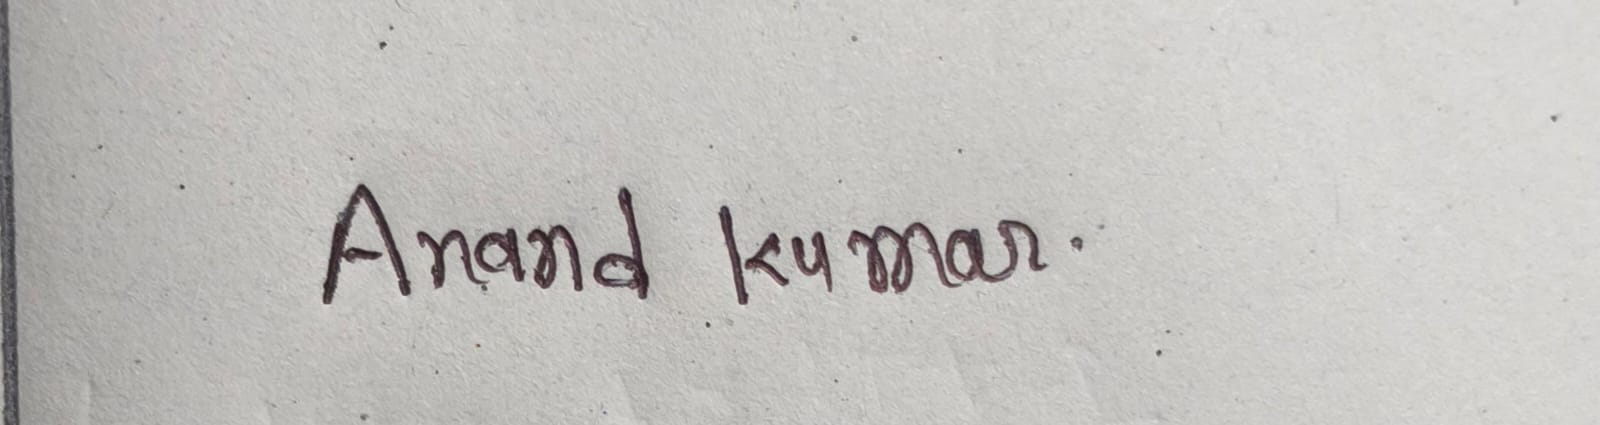 Anand kumar.